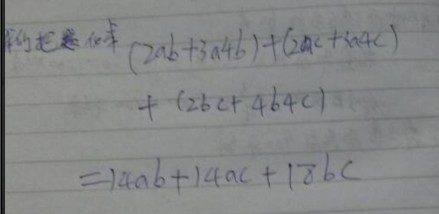 (2ab+3a4b)+(2ac+3a4c)
+(2bc+4b4c)
=14ab+14ac+18bc